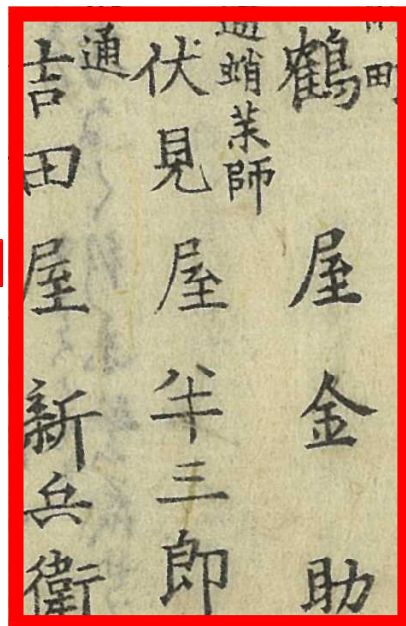 町
鶴屋金助
通蛸茉師
伏見屋半三郎
通
吉田屋新兵衛